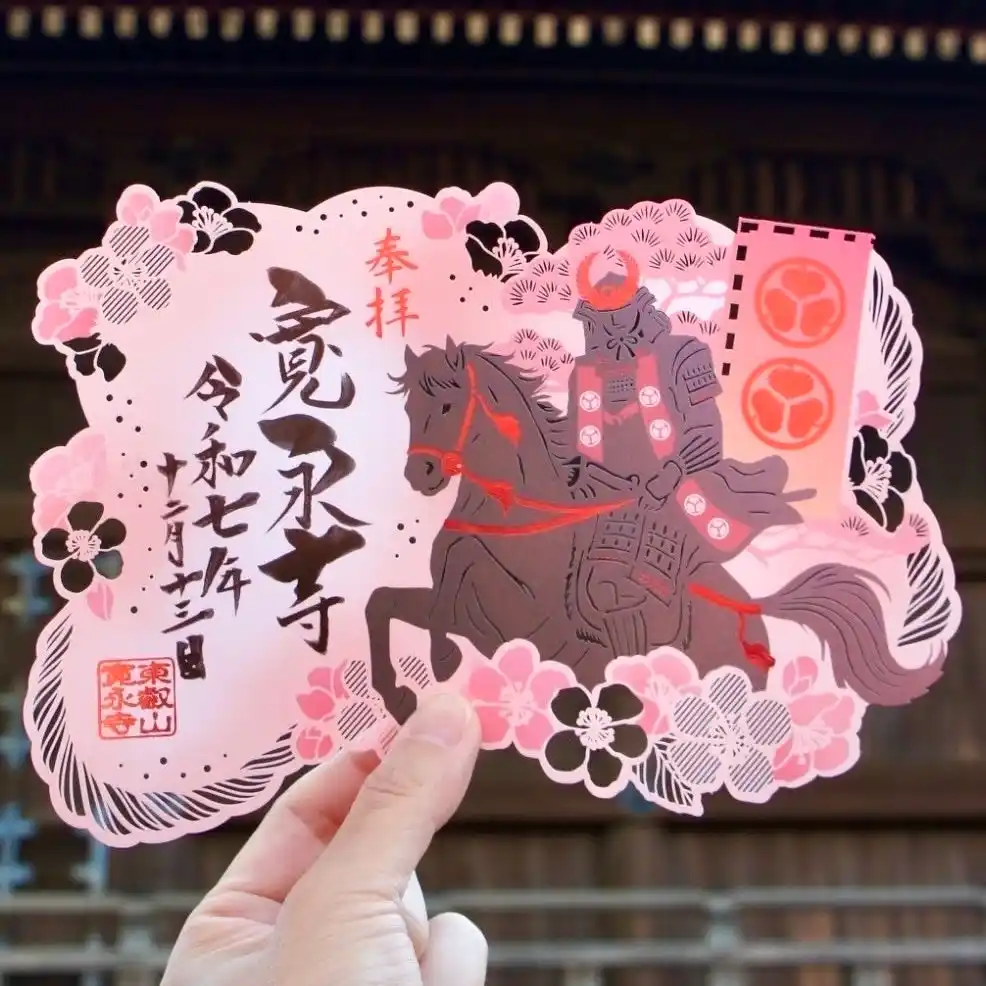 奉拝
寛永寺
令和七年
十二月十三日
東叡山
寛永寺